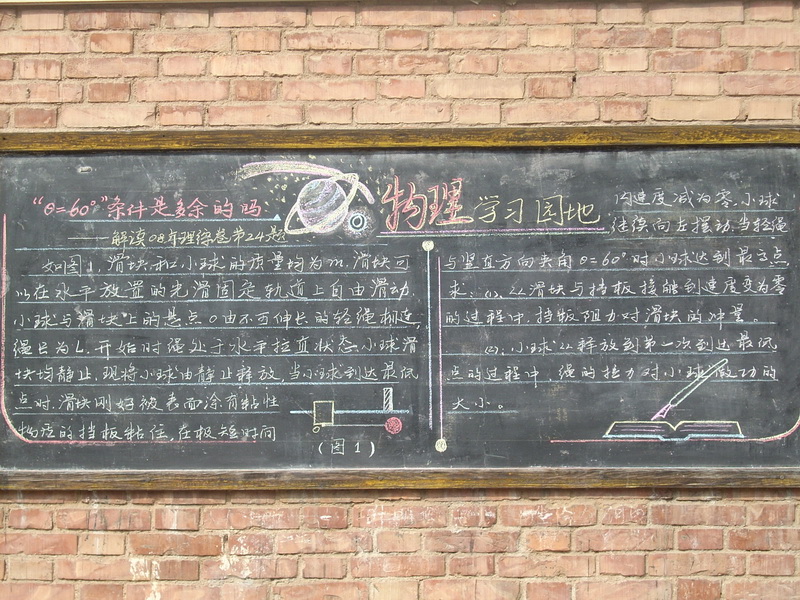 物理学习园地
“θ=60°”条件是多余的吗
——解读08年理综卷第24题
如图1,滑块和小球的质量均为m,滑块可
以在水平放置的光滑固定轨道上自由滑动
小球与滑块上的悬点O由不可伸长的轻绳相连,
绳长为L.开始时绳处于水平拉直状态,小球滑
块均静止.现将小球由静止释放,当小球到达最低
点时.滑块刚好被表面涂有粘性
物质的挡板粘住,在极短时间
(图1)
内速度减为零.小球
继续向左摆动,当轻绳
与竖直方向夹角θ=60°时小球达到最高点
求:(1),从滑块与挡板接触到速度变为零
的过程中,挡板阻力对滑块的冲量。
(2),小球从释放到第一次到达最低
点的过程中,绳的拉力对小球做功的
大小。